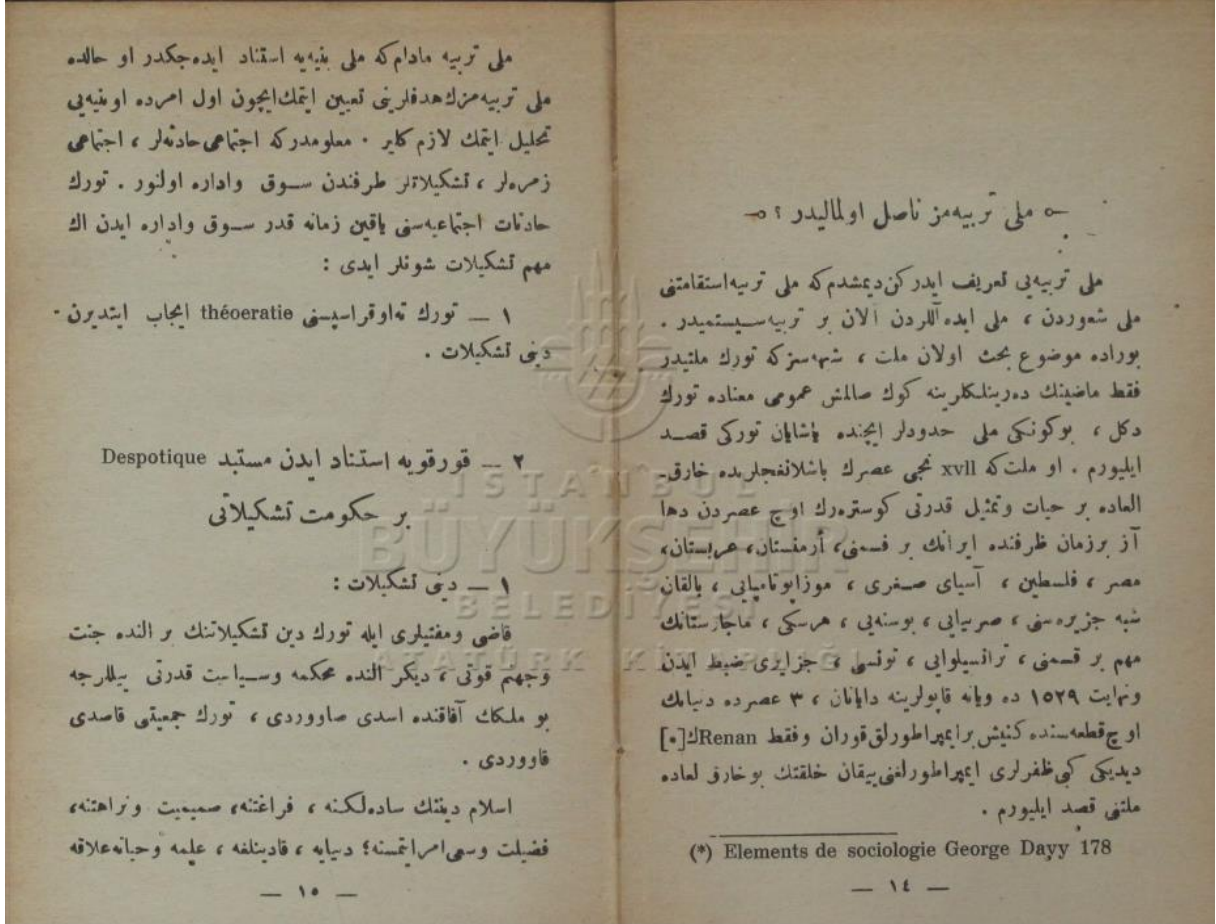 ملی تربیه‌مز ناصل اولمالیدر ؟
ملی تربیه‌یی تعریف ایدركن دیمشدم‌كه ملی تربیه استقامتنی
ملی شعوردن ، ملی ایده‌آللردن آلان بر تربیه سیستمیدر .
بوراده موضوع بحث اولان ملت ، شبهه‌سزكه تورك ملتیدر
فقط ماضینك ده‌رینلكلرینه كوك صالمش عمومی معناده تورك
دكل ، بوكونكی ملی حدودلر ایچنده یاشایان توركی قصد
ایلیورم . او ملت‌كه xvll نجی عصرك باشلانغجلرنده خارق‌
العاده بر حیات وتمثیل قدرتی كوستره‌رك اوچ عصردن دها
آز برزمان ظرفنده ایرانك بر قسمنی، أرمنستان، عربستان،
مصر ، فلسطین ، آسیای صغری ، موزاپوتامیایی ، بالقان
شبه جزیره‌سنی ، صربیایی ، بوسنه‌یی ، هرسكی ، ماجارستانك
مهم بر قسمنی ، ترانسیلوایی ، تونسی ، جزایری ضبط ایدن
ونهایت ١٥٢٩ ده ویانه قاپولرینه دایانان ، ٣ عصرده دنیانك
اوچ قطعه‌سنده كنیش برایمپراطورلق قوران وفقط Renanك[*]
دیدیكی كبی ظفرلری ایمپراطورلغنی ییقان خلقتك بو خارق لعاده
ملتنی قصد ایلیورم .
(*) Elements de sociologie George Dayy 178
— ١٤ —
ملی تربیه مادام‌كه ملی بنیه‌یه استناد ایده‌جكدر او حالده
ملی تربیه‌مزك هدفلرینی تعیین ایتمك ایچون اول امرده او بنیه‌یی
تحلیل ایتمك لازم كلیر . معلومدركه اجتماعی حادثه‌لر ، اجتماعی
زمره‌لر ، تشكیلاتلر طرفندن سوق واداره اولنور . تورك
حادثات اجتماعیه‌سنی یاقین زمانه قدر سوق واداره ایدن اك
مهم تشكیلات شونلر ایدی :
١ — تورك ته‌اوقراسیسنی théoeratie ایجاب ایتدیرن
دینی تشكیلات .
٢ — قورقویه استناد ایدن مستبد Despotique
بر حكومت تشكیلاتی
١ — دینی تشكیلات :
قاضی ومفتیلری ایله تورك دین تشكیلاتنك بر النده جنت
وجهنم قوتی ، دیكر النده محكمه وسیاست قدرتی ییللرجه
بو ملكك آفاقنده اسدی صاووردی ، تورك جمعیتی قاصدی
قاووردی .
اسلام دیننك ساده‌لكنه ، فراغتنه، صمیمیت ونزاهتنه،
فضیلت وسعی امر ایتمسنه؛ دنیایه ، قادینلغه ، علمه وحیاته علاقه
— ١٥ —
ISTANBUL
BÜYÜKŞEHİR
BELEDİYESİ
ATATÜRK KİTAPLIĞI